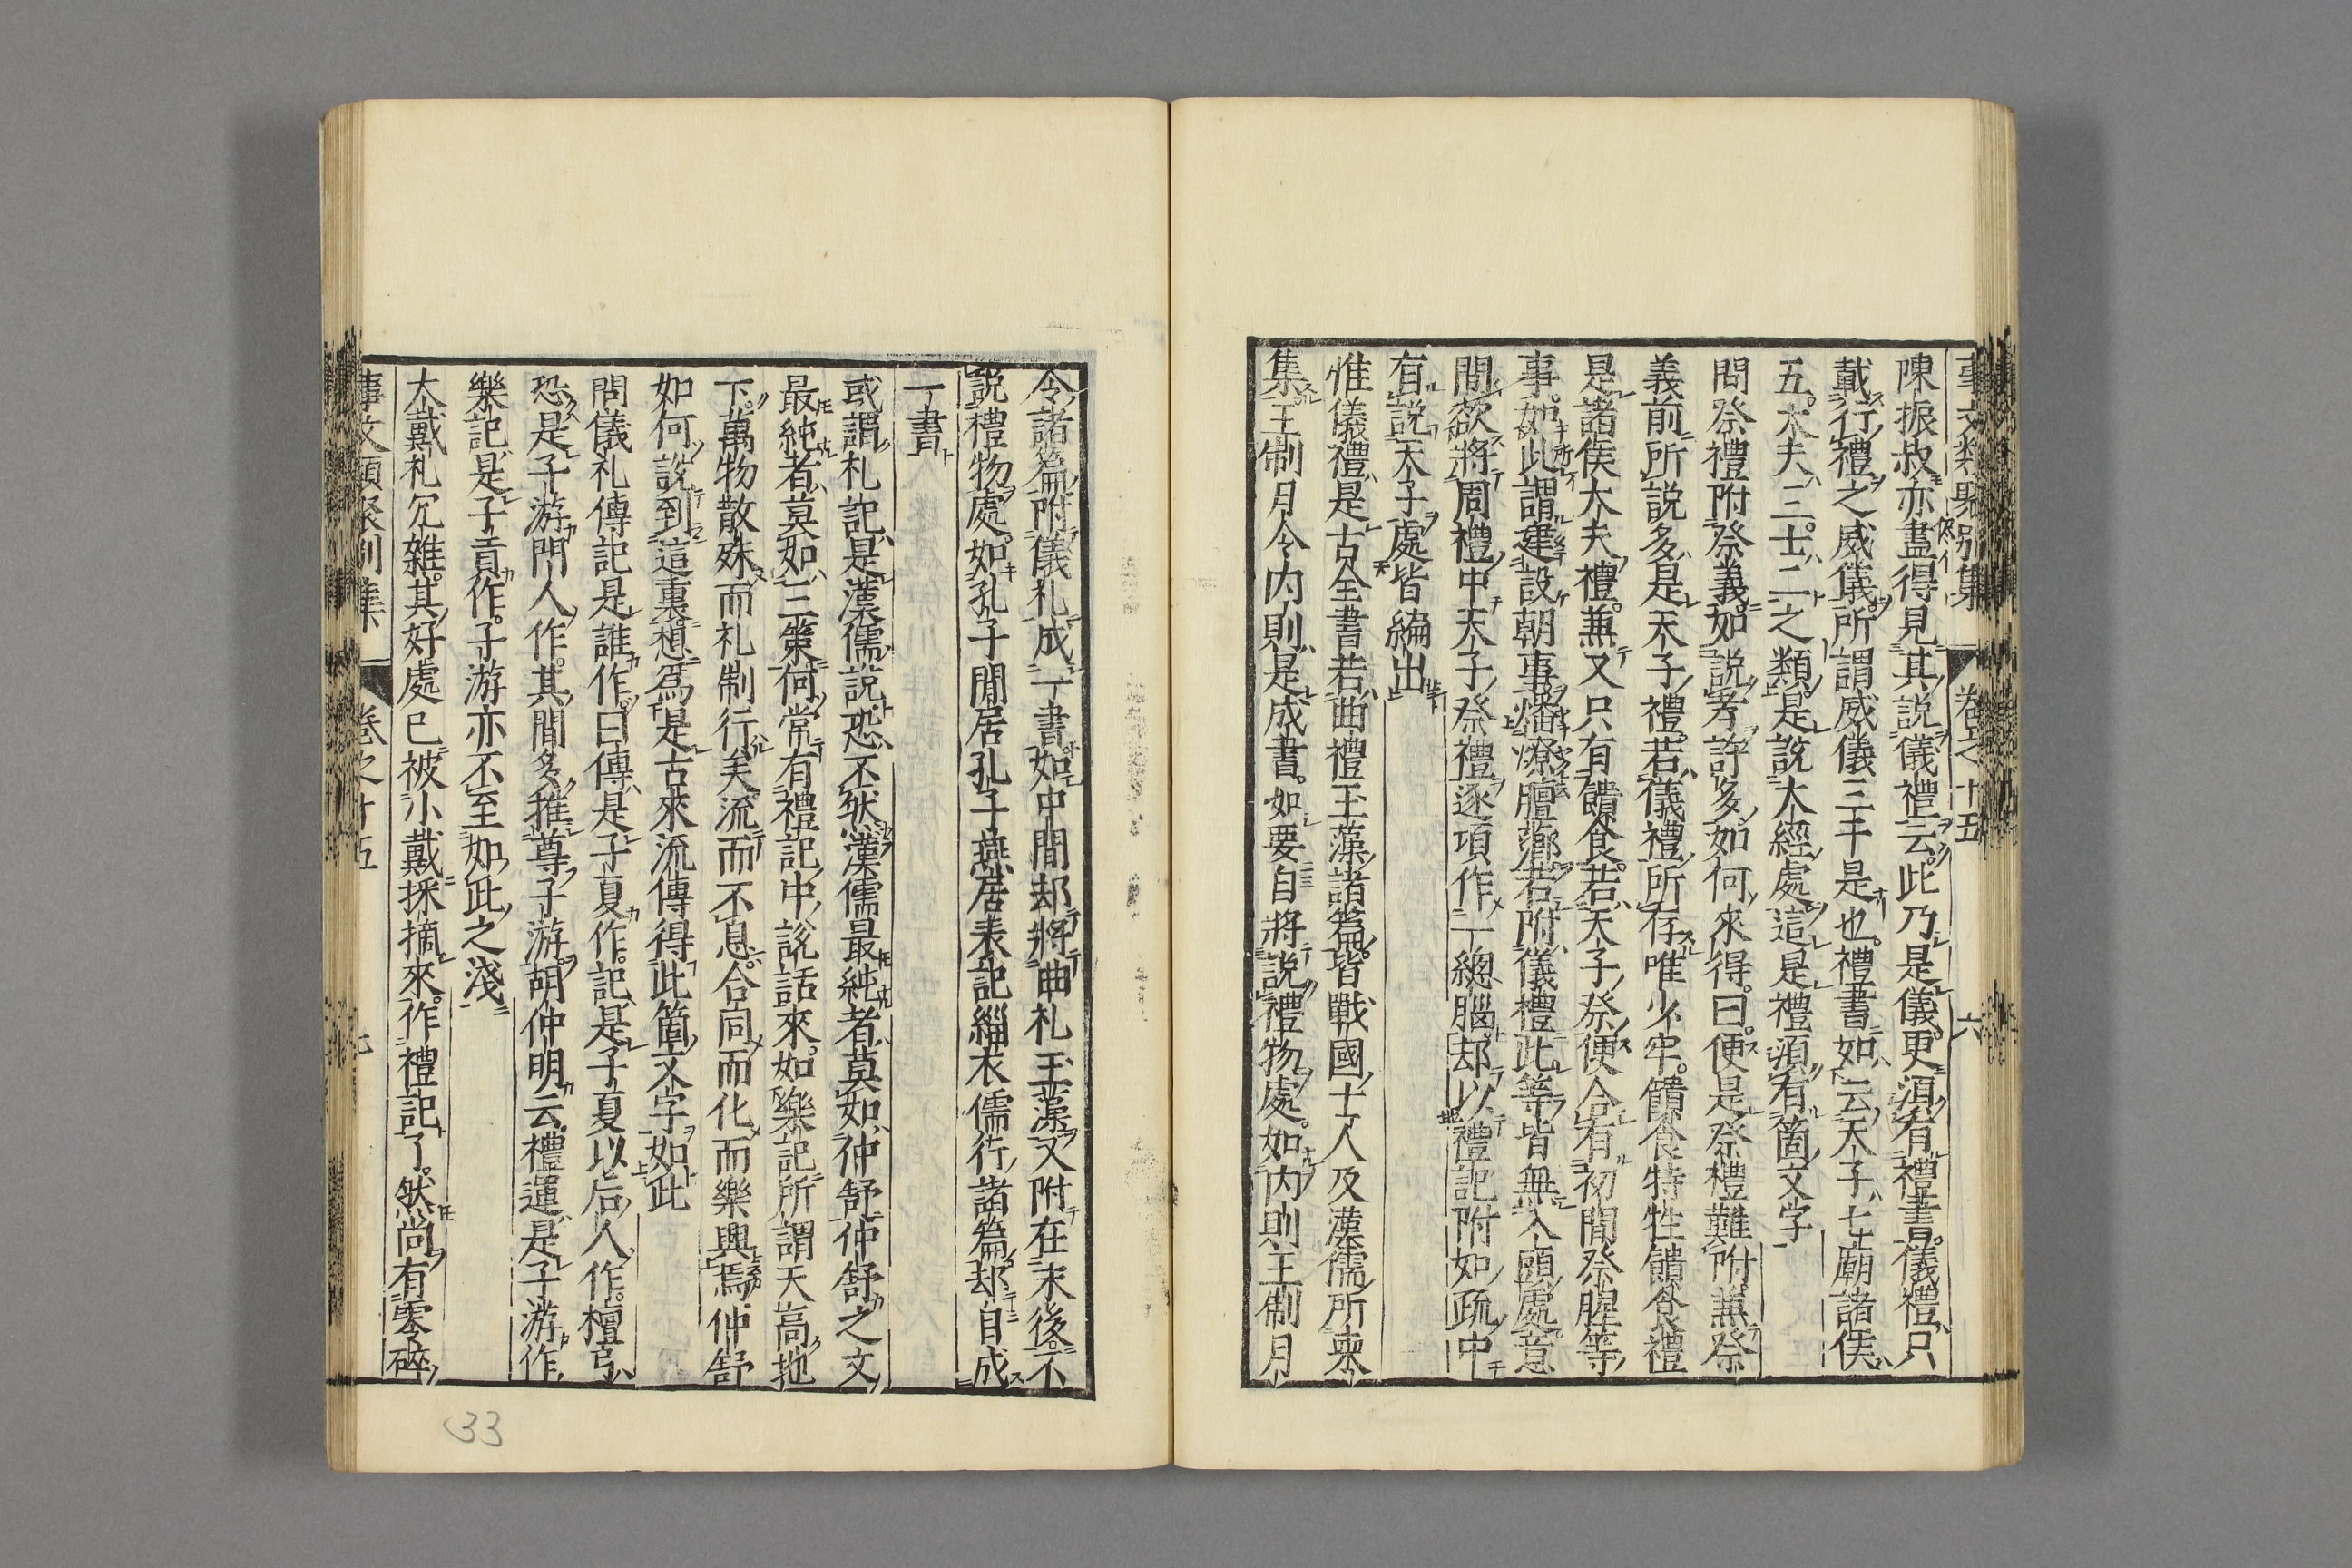 事文類聚別集 卷之十五 六
陳振叔亦儘得見其說儀禮云此乃是儀更須有禮書儀禮只
戴行禮之威儀所謂威儀三千是也禮書如云天子七廟諸侯
五大夫三士二之類是說大經處這是禮須有箇文字
問祭禮附祭義如說孝許多如何來得曰便是祭禮難附兼祭
義前所說多是天子禮若儀禮所存唯少牢饋食特牲饋食禮
是諸侯大夫禮兼又只有饋食若天子祭便合有初間祭腥等
事如此謂建設朝事燔燎羶薌若附儀禮此等皆無入頭處意
間欲將周禮中天子祭禮逐項作一總腦却以禮記附如疏中
有說天子處皆編出
惟儀禮是古全書若曲禮玉藻諸篇皆戰國士人及漢儒所裒
集王制月令內則是成書如要自將說禮物處如內則王制月
令諸篇附儀礼成一書如中間却將曲礼玉藻又附在末後不
說禮物處如孔子閒居孔子燕居表記緇衣儒行諸篇却自成
一書
或謂礼記是漢儒說恐不然漢儒最純者莫如仲舒仲舒之文
最純者莫如三策何常有禮記中說話來如樂記所謂天高地
下萬物散殊而礼制行矣流而不息合同而化而樂興焉仲舒
如何說到這裏想爲是古來流傳得此箇文字如此
問儀礼傳記是誰作曰傳是子夏作記是子夏以后人作檀弓
恐是子游門人作其間多推尊子游胡仲明云禮運是子游作
樂記是子貢作子游亦不至如此之淺
大戴礼冗雜其好處已被小戴採摘來作禮記了然尚有零碎
事文類聚別集 卷之十五 七
33